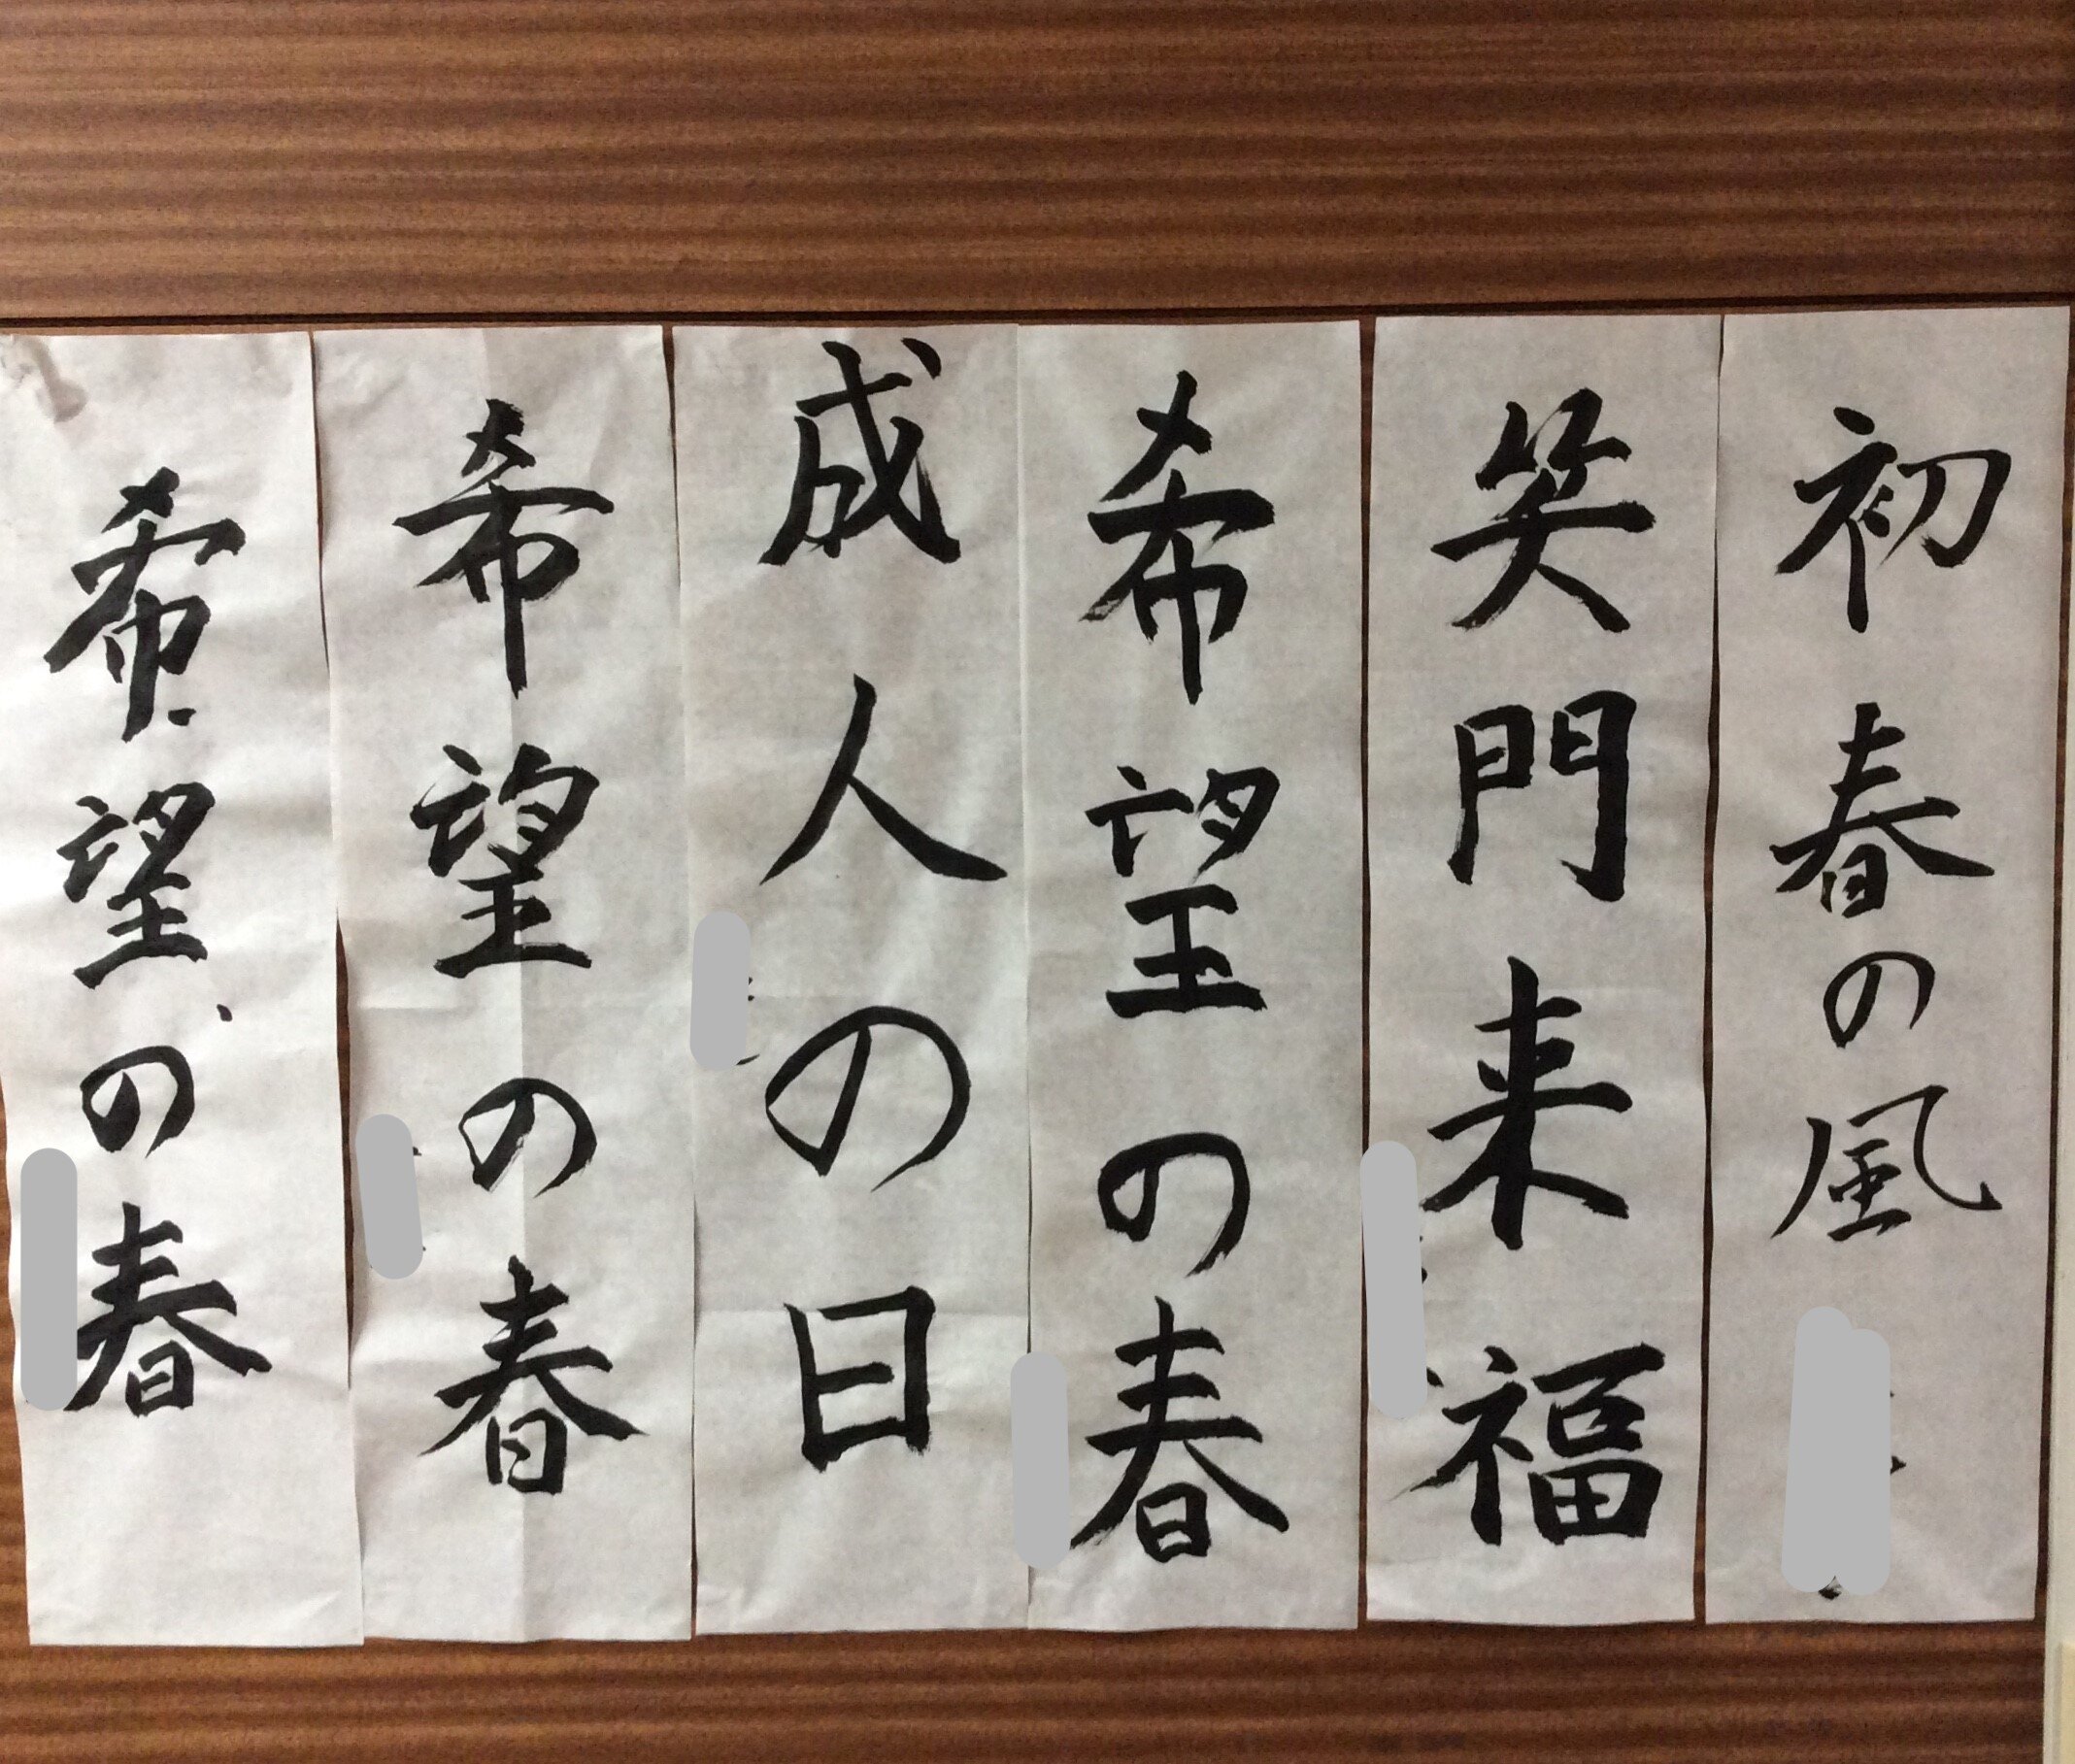 初春の風
笑門来福
希望の春
成人の日
希望の春
希望の春